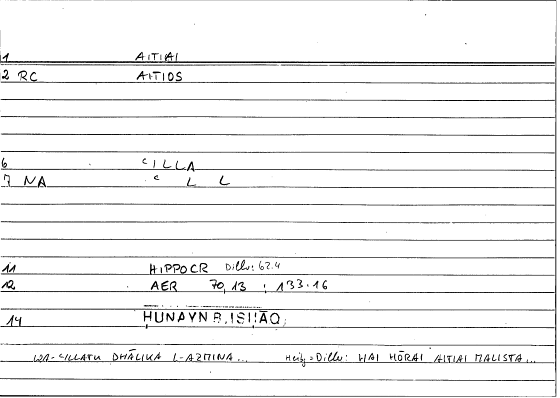 1 AITIAI
2 RC AITIOS
6 ʿILLA
7 NA ʿ L L
11 HIPPOCR Diller: 62.4
12 AER 70,13 ; 133.16
14 ḤUNAYN B. ISḤĀQ
WA-ʿILLATU DHĀLIKA L-AZMINA... Heib = Diller: HAI HŌRAI AITIAI MALISTA...